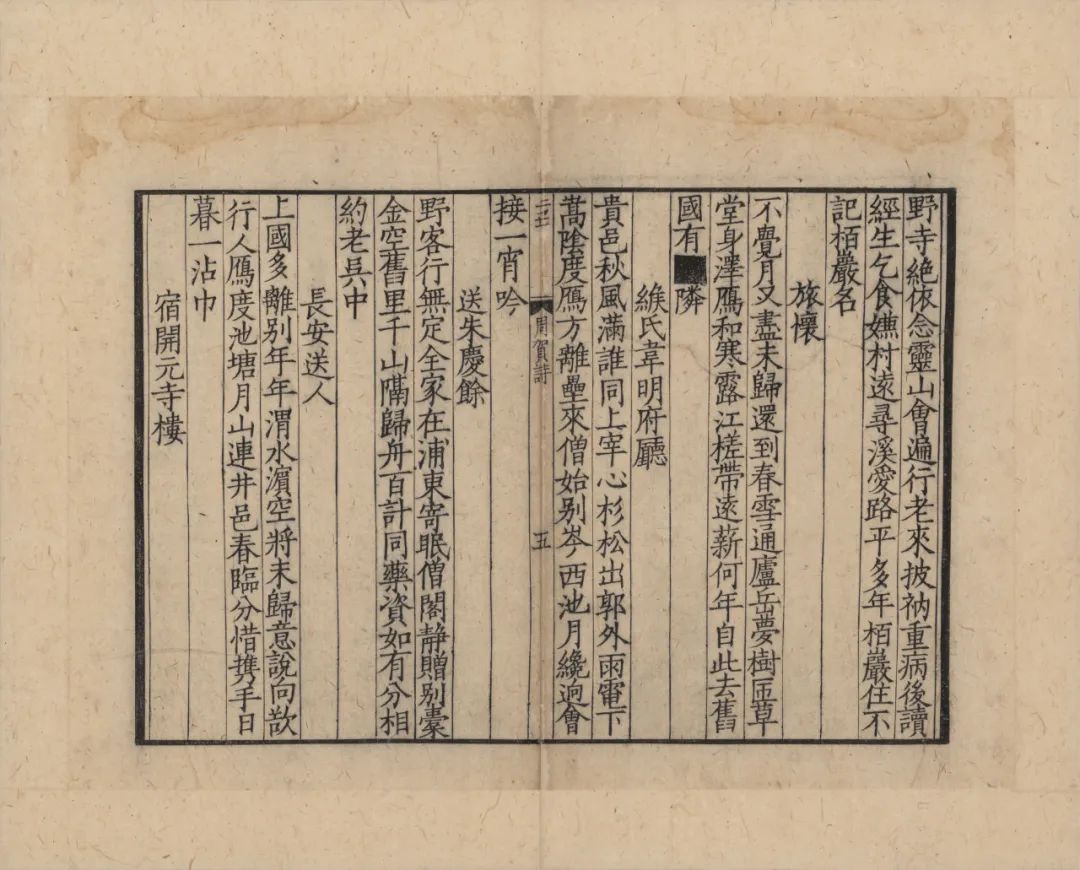 野寺絶依念靈山會遍行老來披衲重病後讀
經生乞食嫌村遠尋溪愛路平多年栢巖住不
記栢巖名
旅懷
不覺月又盡未歸還到春雪通廬岳夢樹匝草
堂身澤鴈和寒露江槎帶遠薪何年自此去舊
國有隣
緱氏韋明府廳
貴邑秋風滿誰同上宰心杉松出郭外雨電下
蒿陰度鴈方離壘來僧始别岑西池月纔逈會
接一宵吟
周賀詩
五
送朱慶餘
野客行無定全家在浦東寄眠僧閣静贈别橐
金空舊里千山隔歸舟百計同藥資如有分相
約老吳中
長安送人
上國多離别年年渭水濵空將未歸意說向欲
行人鴈度池塘月山連井邑春臨分惜攜手日
暮一沾巾
宿開元寺樓